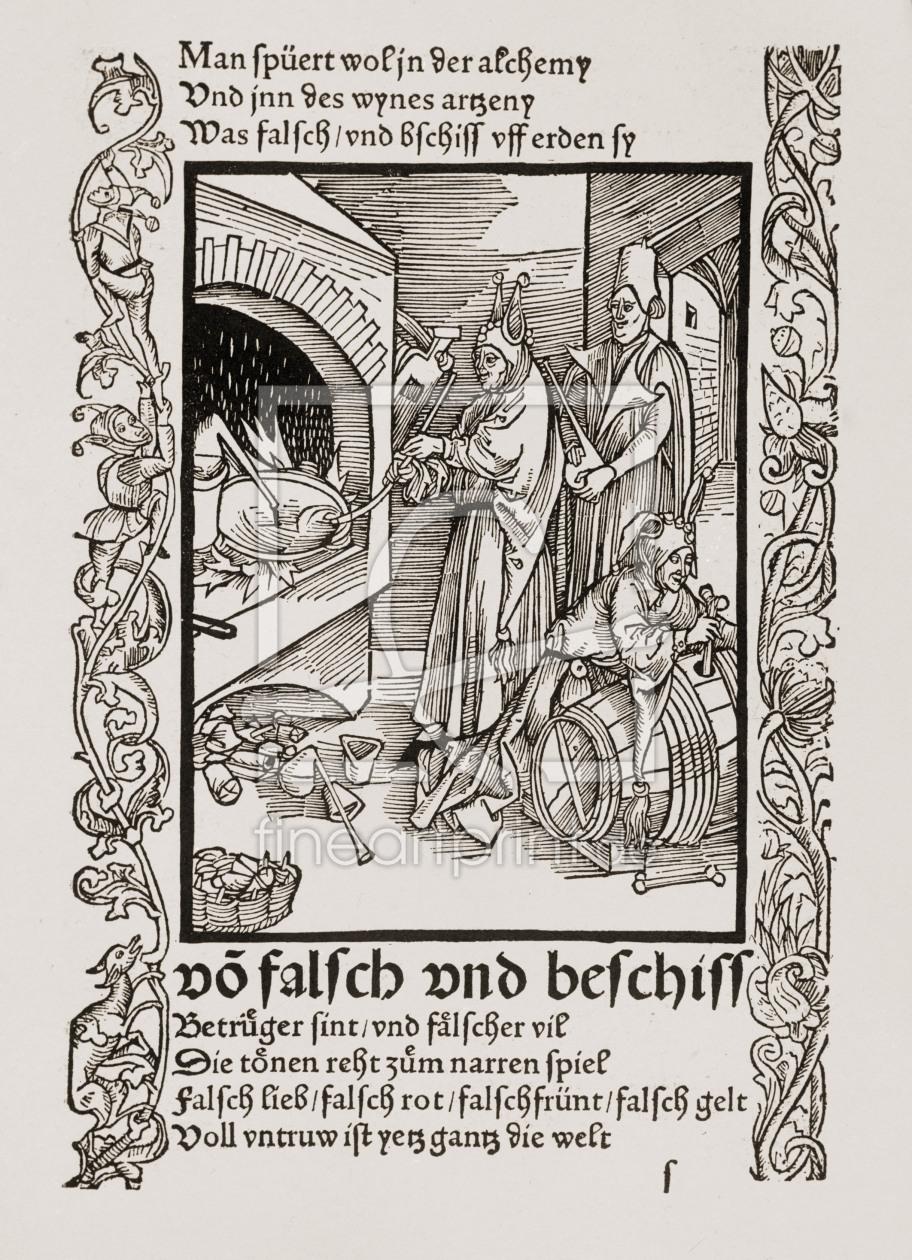 Man ſpüert wol jn der alchemy
Vnd jnn des wynes artzeny
Was falſch / vnd bſchiſſ vff erden ſy
fineartprint
võ falſch vnd beſchiſſ
Betrůger ſint / vnd fålſcher vil
Die tonen reht zům narren ſpiel
Falſch lieb / falſch rot / falſchfrünt / falſch gelt
Voll vntruw iſt yetz gantz die welt
ſ